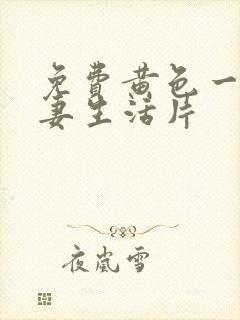 免費黄色一
妻生活片
夜嵐雪